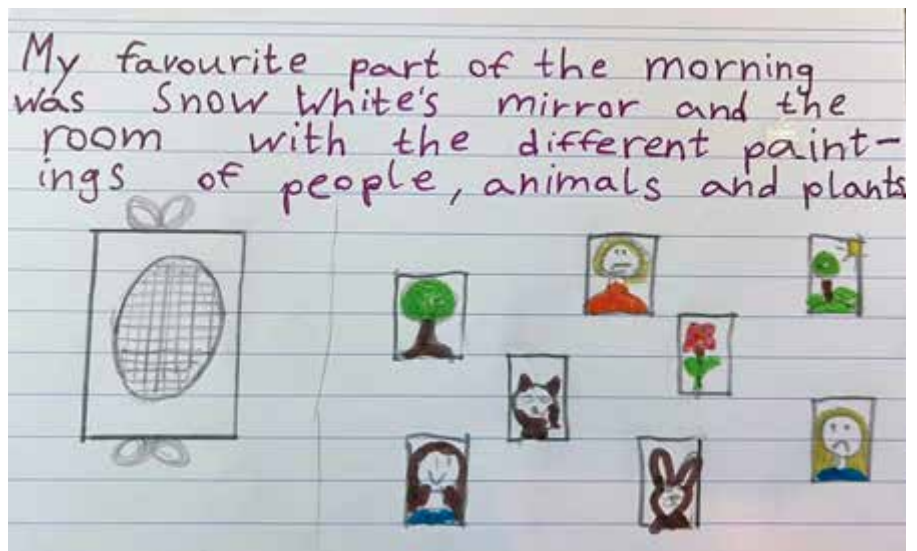 My favourite part of the morning
was Snow White's mirror and the
room with the different paint-
ings of people, animals and plants